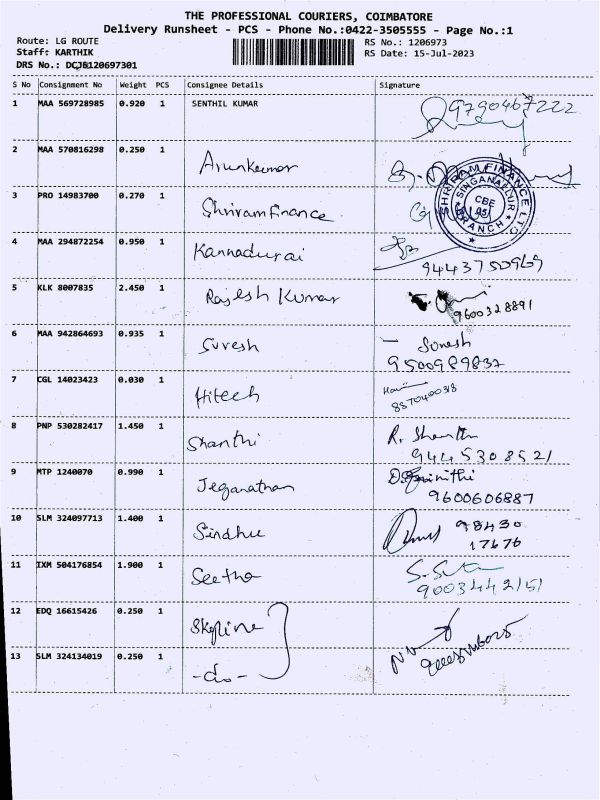 THE PROFESSIONAL COURIERS, COIMBATORE
Delivery Runsheet - PCS - Phone No.:0422-3505555 - Page No.:1
Route: LG ROUTE RS No.: 1206973
Staff: KARTHIK RS Date: 15-Jul-2023
DRS No.: DCJ6120697301
S No Consignment No Weight PCS Consignee Details Signature
1 MAA 569728985 0.920 1 SENTHIL KUMAR 9790467222
2 MAA 570816298 0.250 1 Arunkumar
3 PRO 14983700 0.270 1 Shriram finance
SHRIRAM FINANCE LTD
SINGANALLUR
CBE
BRANCH
4 MAA 294872254 0.950 1 Kannadurai
9443750969
5 KLK 8007835 2.450 1 Rajesh Kumar
9600328891
6 MAA 942864693 0.935 1 Suresh - Suresh
9500989837
7 CGL 14023423 0.030 1 Hitech
8870400318
8 PNP 530282417 1.450 1 Shanthi R. Shanthi
9445308521
9 MTP 1240070 0.990 1 Jeganathan
9600606887
10 SLM 324097713 1.400 1 Sindhu 98430
17676
11 IXM 504176854 1.900 1 Seetha
9003442151
12 EDQ 16615426 0.250 1 Skyline
13 SLM 324134019 0.250 1 -do-